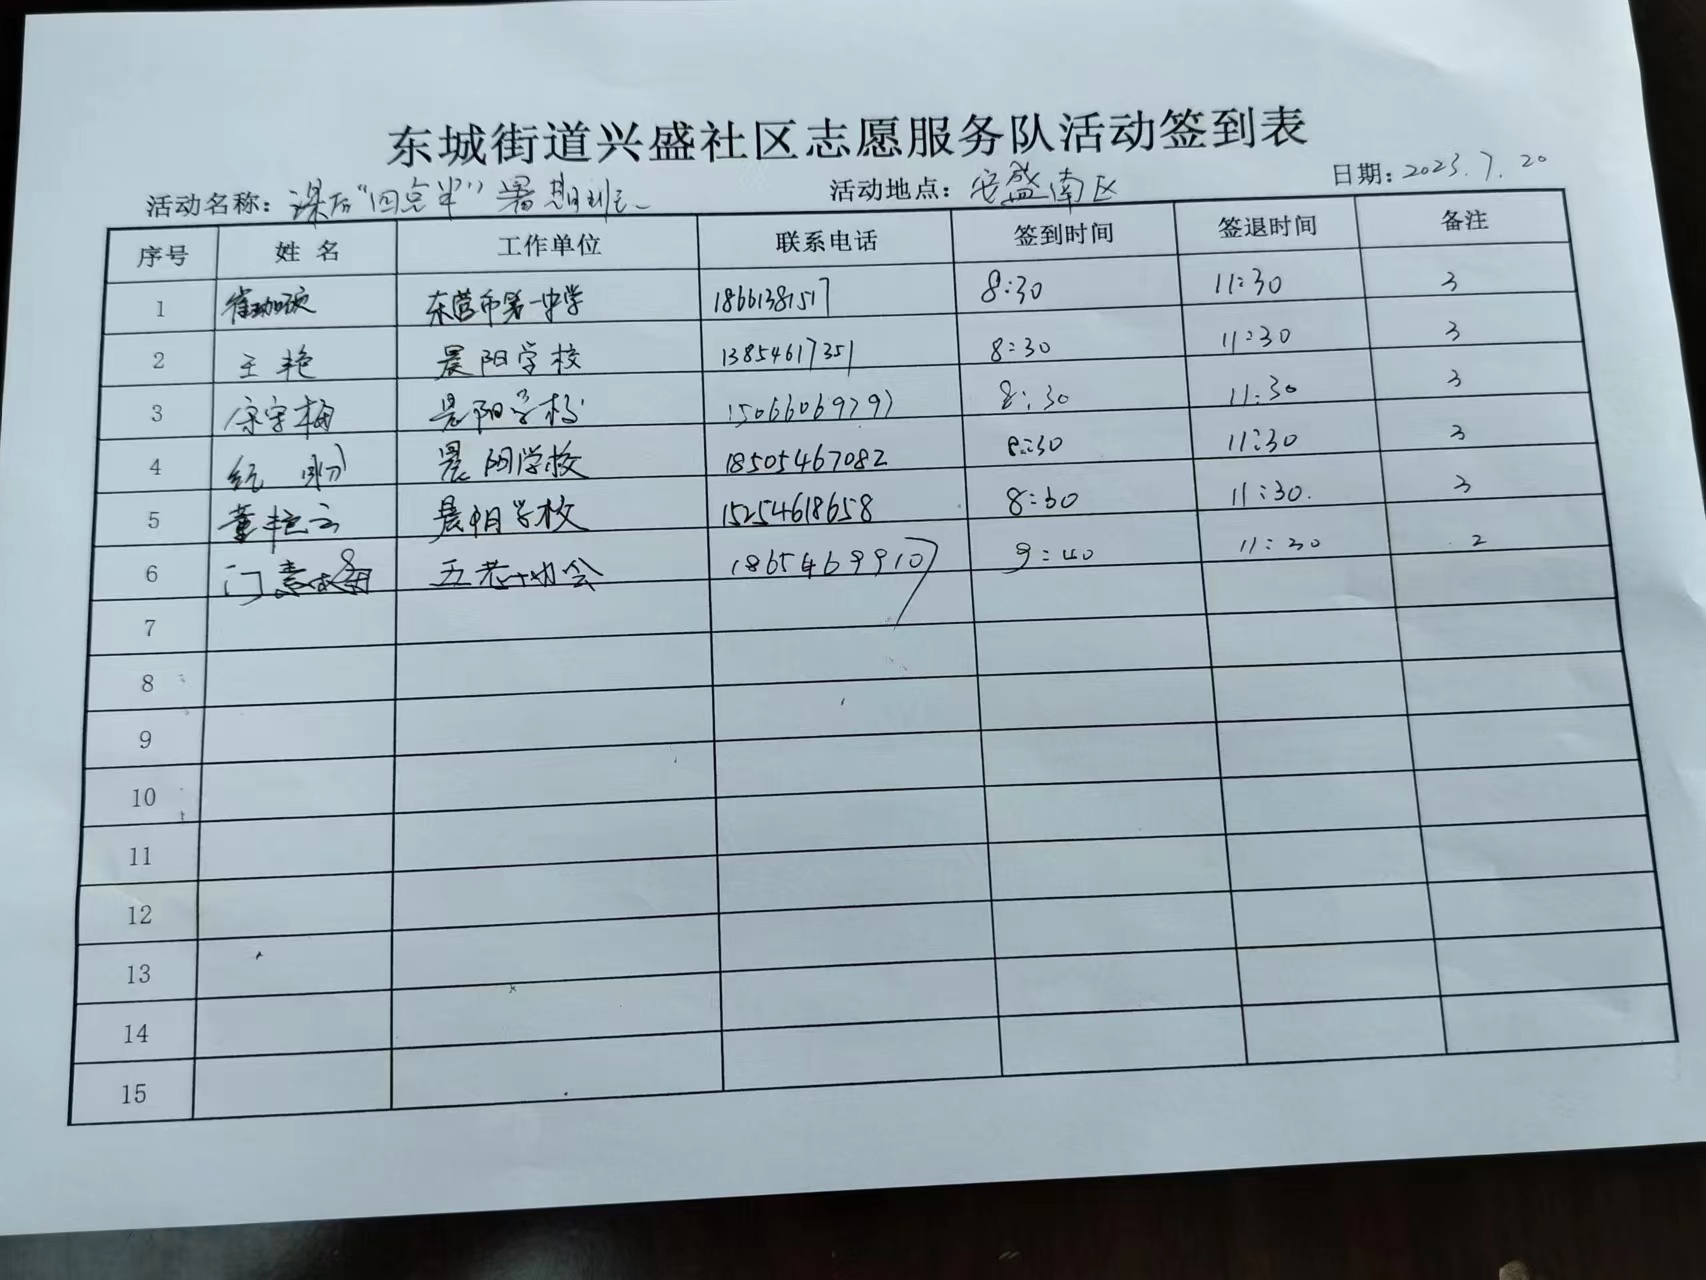 东城街道兴盛社区志愿服务队活动签到表
活动名称：课后“四点半”暑期班 活动地点：安盛南区 日期：2023.7.20
序号 姓名 工作单位 联系电话 签到时间 签退时间 备注
1 崔 东营市第一中学 18661381517 8:30 11:30 3
2 王艳 晨阳学校 13854617351 8:30 11:30 3
3 晨阳学校 15066069797 8:30 11:30 3
4 晨阳学校 18505467082 8:30 11:30 3
5 董艳云 晨阳学校 15254618658 8:30 11:30. 3
6 门 五老协会 18654699107 9:40 11:30 2
7
8
9
10
11
12
13
14
15